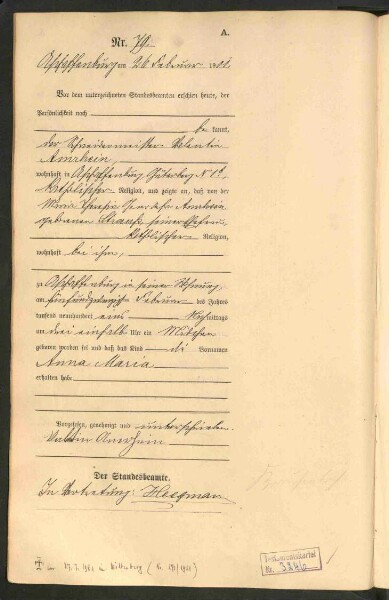 A.
Nr. 79.
Aschaffenburg am 26 Februar 1901.
Vor dem unterzeichneten Standesbeamten erschien heute, der
Persönlichkeit nach
be kannt,
der Schneidermeister Valentin
Amrhein,
wohnhaft in Aschaffenburg
katholischer Religion, und zeigte an, daß von der
Amrhein
geborenen seiner Ehefrau
katholischer Religion,
wohnhaft bei ihm,
zu Aschaffenburg in seiner Wohnung,
am fünfundzwanzigsten Februar des Jahres
tausend neunhundert eins Nachmittags
um drei einhalb Uhr ein Mädchen
geboren worden sei und daß das Kind die Vornamen
Anna Maria
erhalten habe
Vorgelesen, genehmigt und unterschrieben
Valentin Amrhein
Der Standesbeamte.
In Vertretung:
Testamentskartei
Nr.